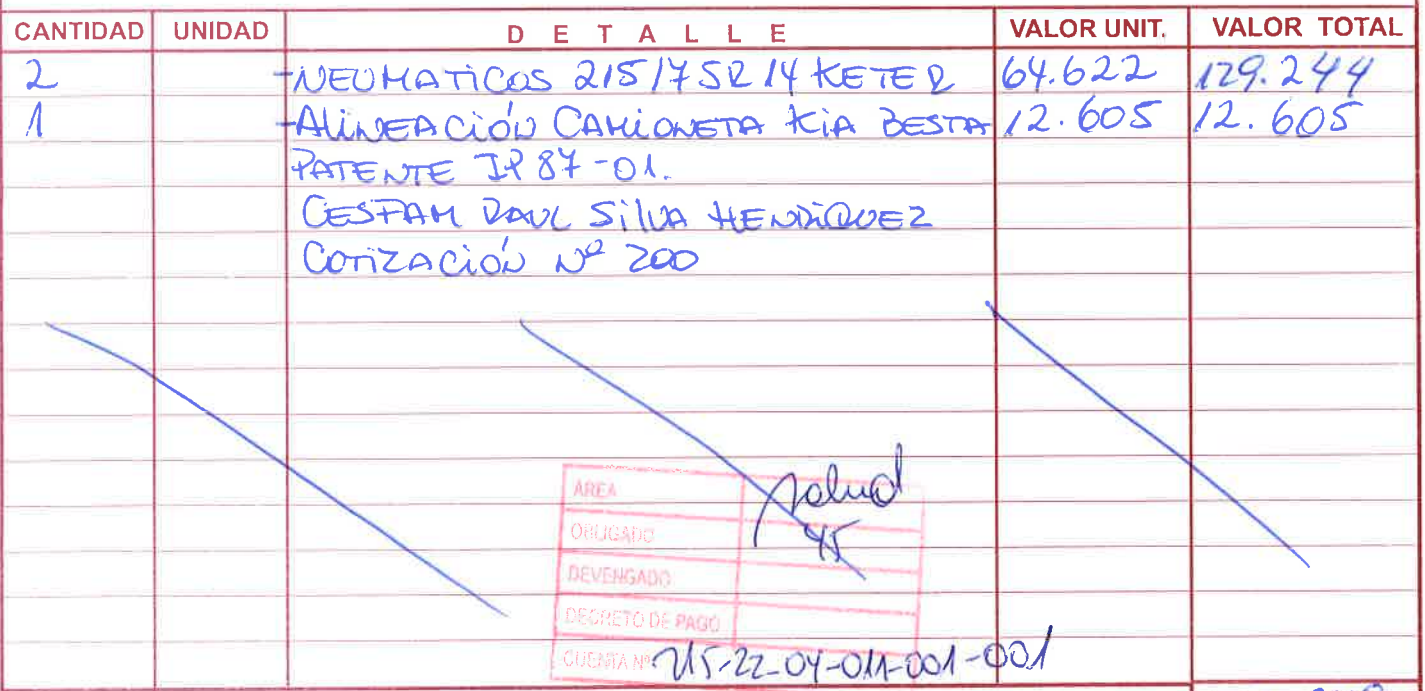 CANTIDAD UNIDAD DETALLE VALOR UNIT. VALOR TOTAL
2 -NEUMATICOS 215/75R14 KETER 64.622 129.244
1 -ALINEACIÓN CAMIONETA KIA BESTA 12.605 12.605
PATENTE IP 87-01.
CESFAM RAUL SILVA HENRIQUEZ
COTIZACIÓN Nº 200
AREA Salud
OBLIGADO 45
DEVENGADO
DECRETO DE PAGO
CUENTA Nº 215-22-04-011-001-001